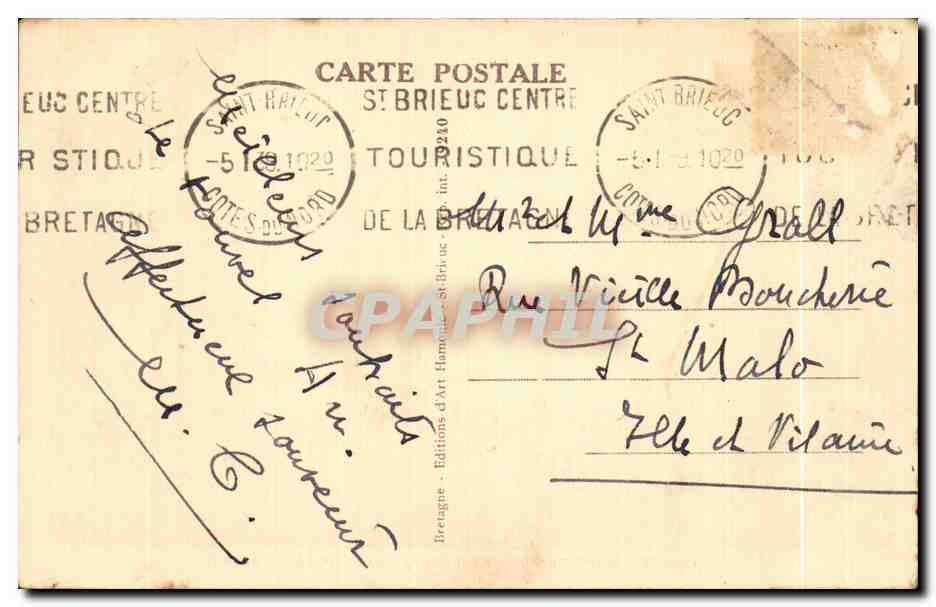 CARTE POSTALE
IEUC CENTRE
R STIQUE
BRETAGNE
SAINT-BRIEUC
-5.1 10 20
COTES DU NORD
ST BRIEUC CENTRE
TOURISTIQUE
DE LA BRETAGNE
SAINT-BRIEUC
-5.1 10 20
COTES DU NORD
DE
meilleurs souhaits
de Nouvel An.
Affectueux souvenir
M. C.
Bretagne - Editions d'Art Hamonic - St-Brieuc - int.
Mr et Mme
Rue Vieille Boucherie
St Malo
Ille et Vilaine
CPAPHIL